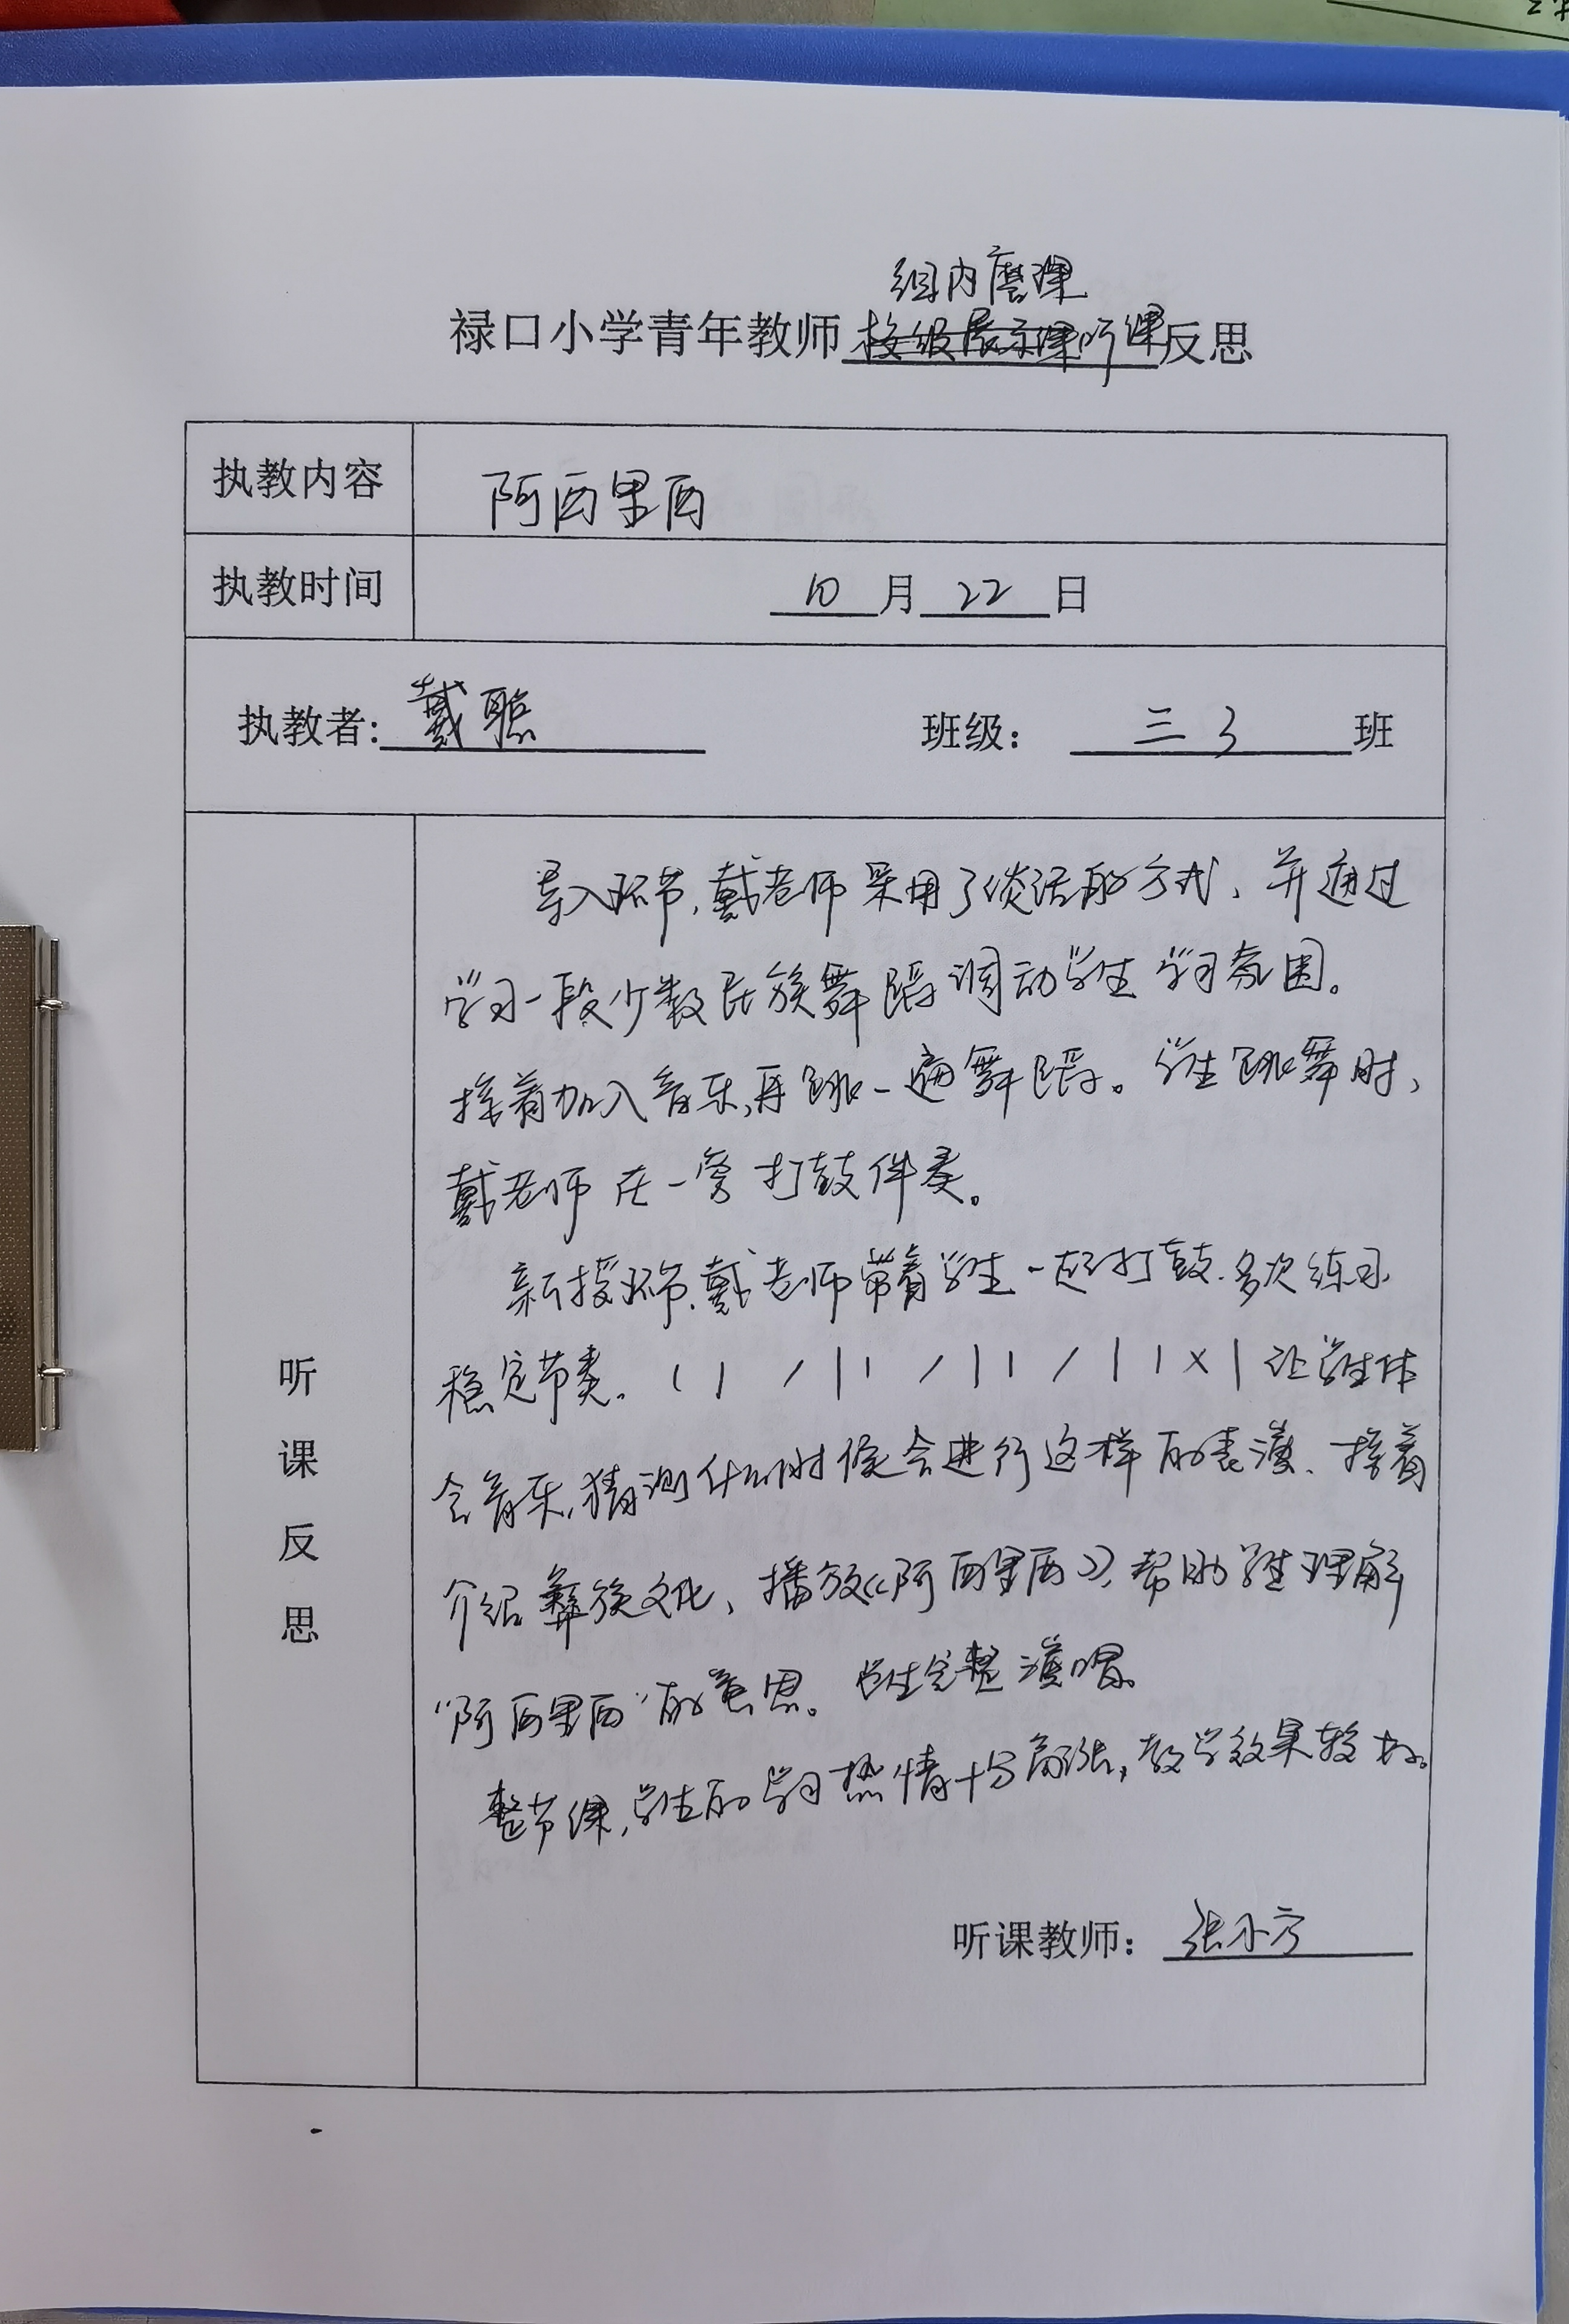 组内磨课
禄口小学青年教师校级展示课听课反思
执教内容 阿西里西
执教时间 10月22日
执教者: 戴聪 班级: 三3班
听课反思
导入环节,戴老师采用了谈话的方式,并通过
学习一段少数民族舞蹈调动学生学习氛围。
接着加入音乐,再跳一遍舞蹈。学生跳舞时,
戴老师在一旁打鼓伴奏。
新授环节,戴老师带着学生一起打鼓,多次练习
稳定节奏。 | | / | | / | | / | | X | 让学生体
会音乐,猜测什么时候会进行这样的表演、接着
介绍彝族文化、播放《阿西里西》,帮助学生理解
“阿西里西”的意思。学生完整演唱。
整节课,学生的学习热情十分高涨,教学效果较好。
听课教师: 张小方